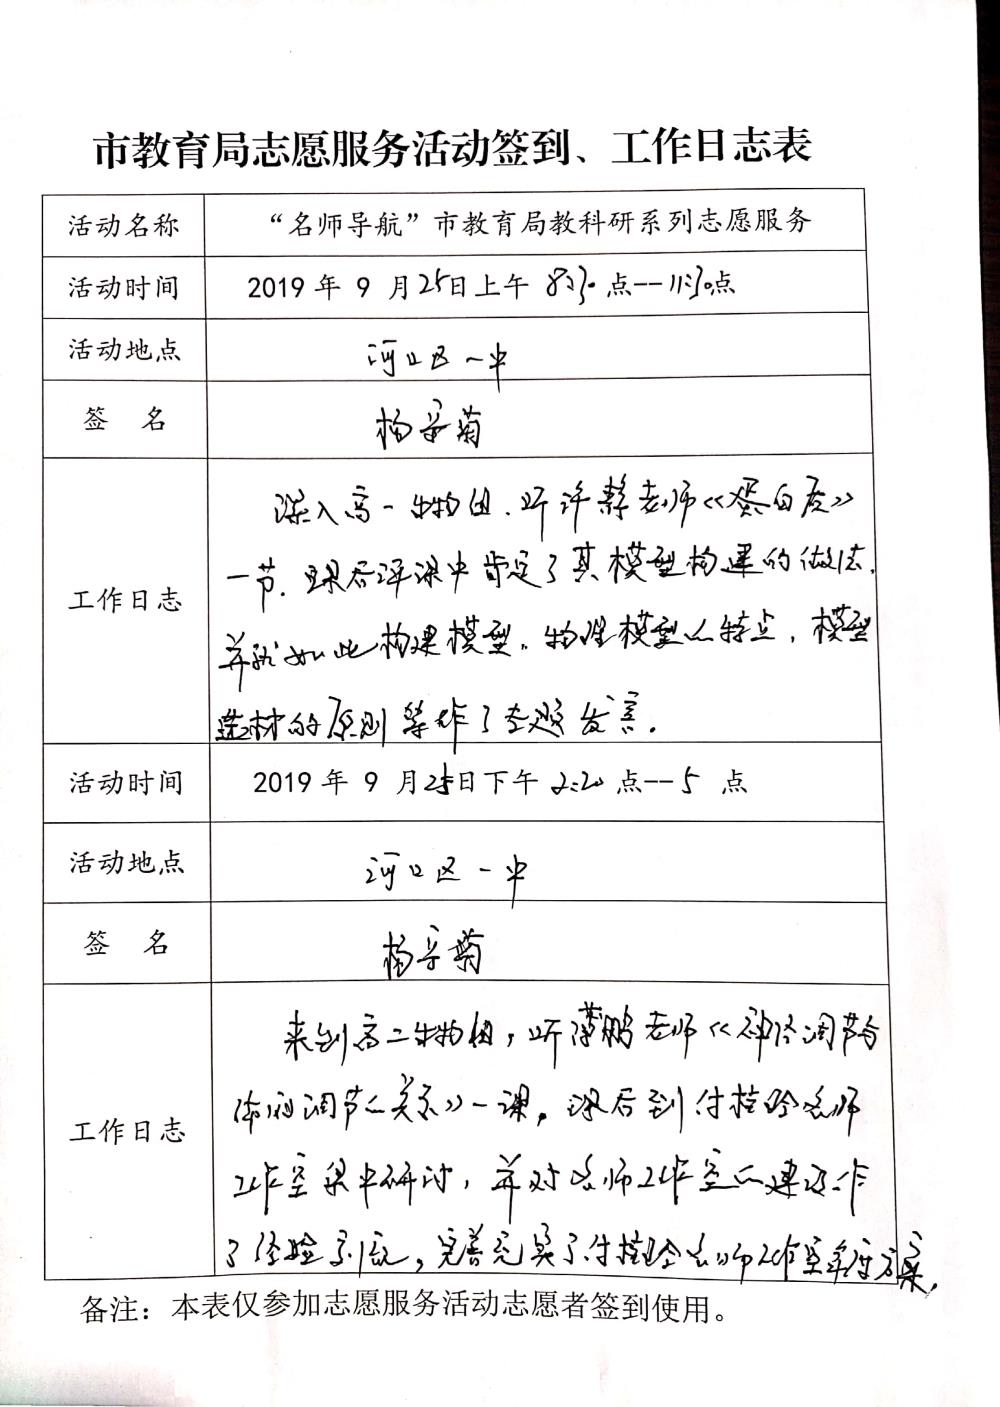 市教育局志愿服务活动签到、工作日志表
活动名称 “名师导航”市教育局教科研系列志愿服务
活动时间 2019 年 9 月25日上午 8:30 点--11:30点
活动地点 河口区一中
签 名 杨采菊
工作日志
深入高一生物组.听许静老师《蛋白质》
一节.课后评课中肯定了其模型构建的做法,
并就如此构建模型.物理模型的特点,模型
选材的原则等作了专题发言.
活动时间 2019 年 9 月25日下午 2:20 点--5 点
活动地点 河口区一中
签 名 杨采菊
工作日志
来到高二生物组,听薄鹏老师《神经调节与
体液调节的关系》一课,课后到付桂玲名师
工作室集中研讨,并对名师工作室的建设作
了经验,完善充实了付桂玲名师工作室年度方案.
备注：本表仅参加志愿服务活动志愿者签到使用。